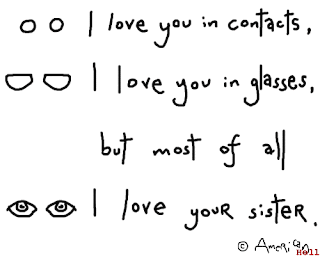 I love you in contacts,
I love you in glasses,
but most of all
I love youR sisteR.
© AmeRican Hell